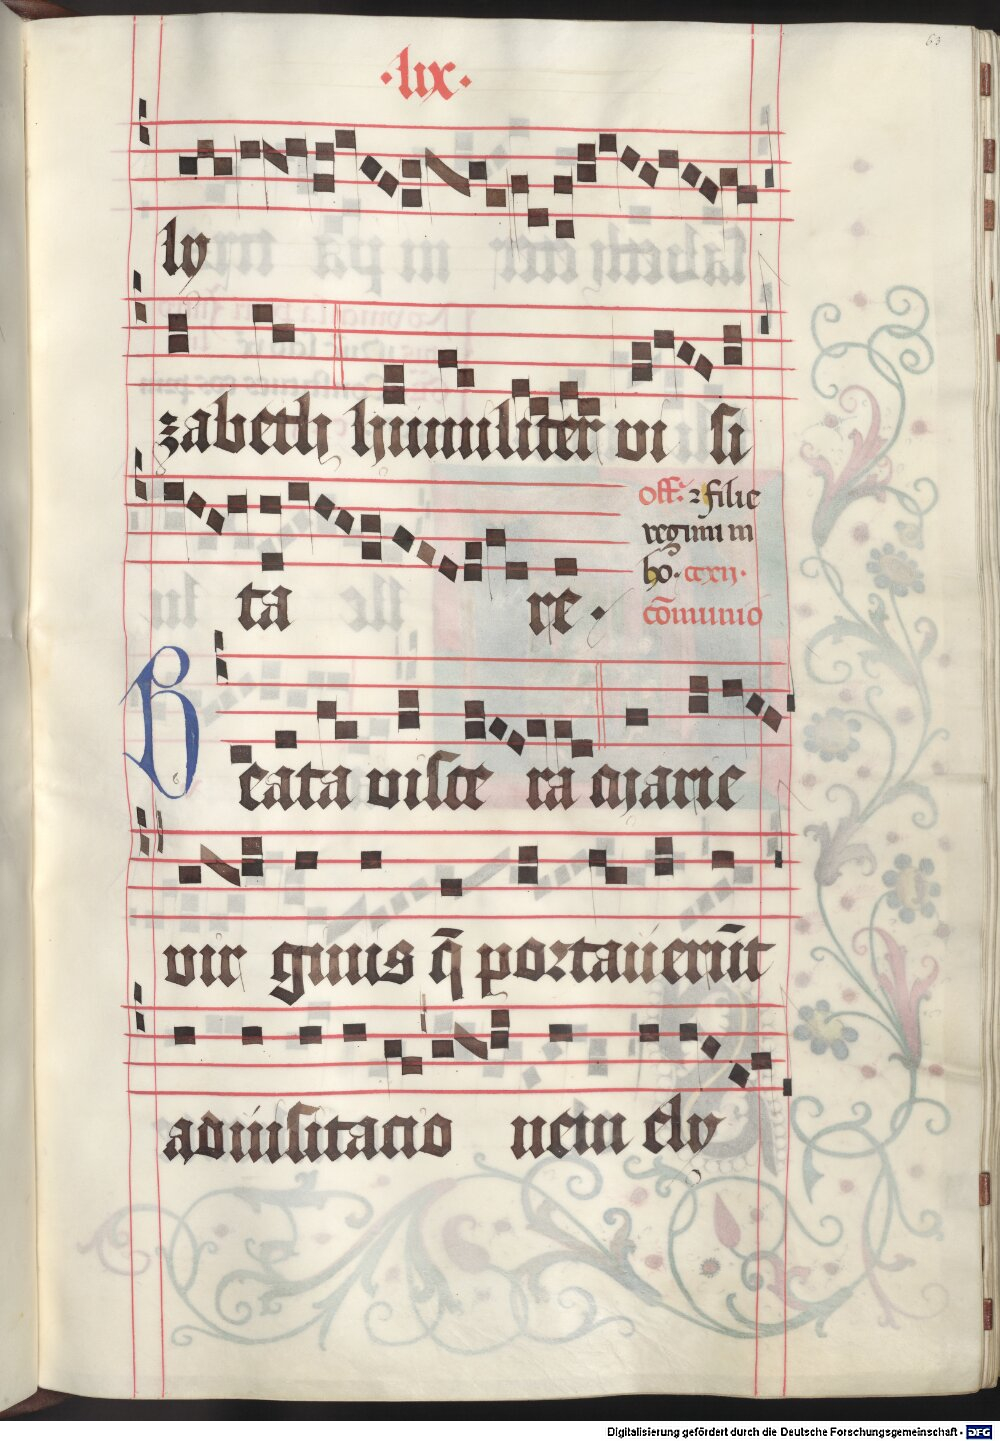 ·lix·
63
ly
zabeth humiliter vi si
ta re·
off. filie
regum in
ho. cexij·
cōmunio
Beata visce ra marie
vir ginis q̄ portaverūt
ad visitacio nem ely
Digitalisierung gefördert durch die Deutsche Forschungsgemeinschaft - DFG